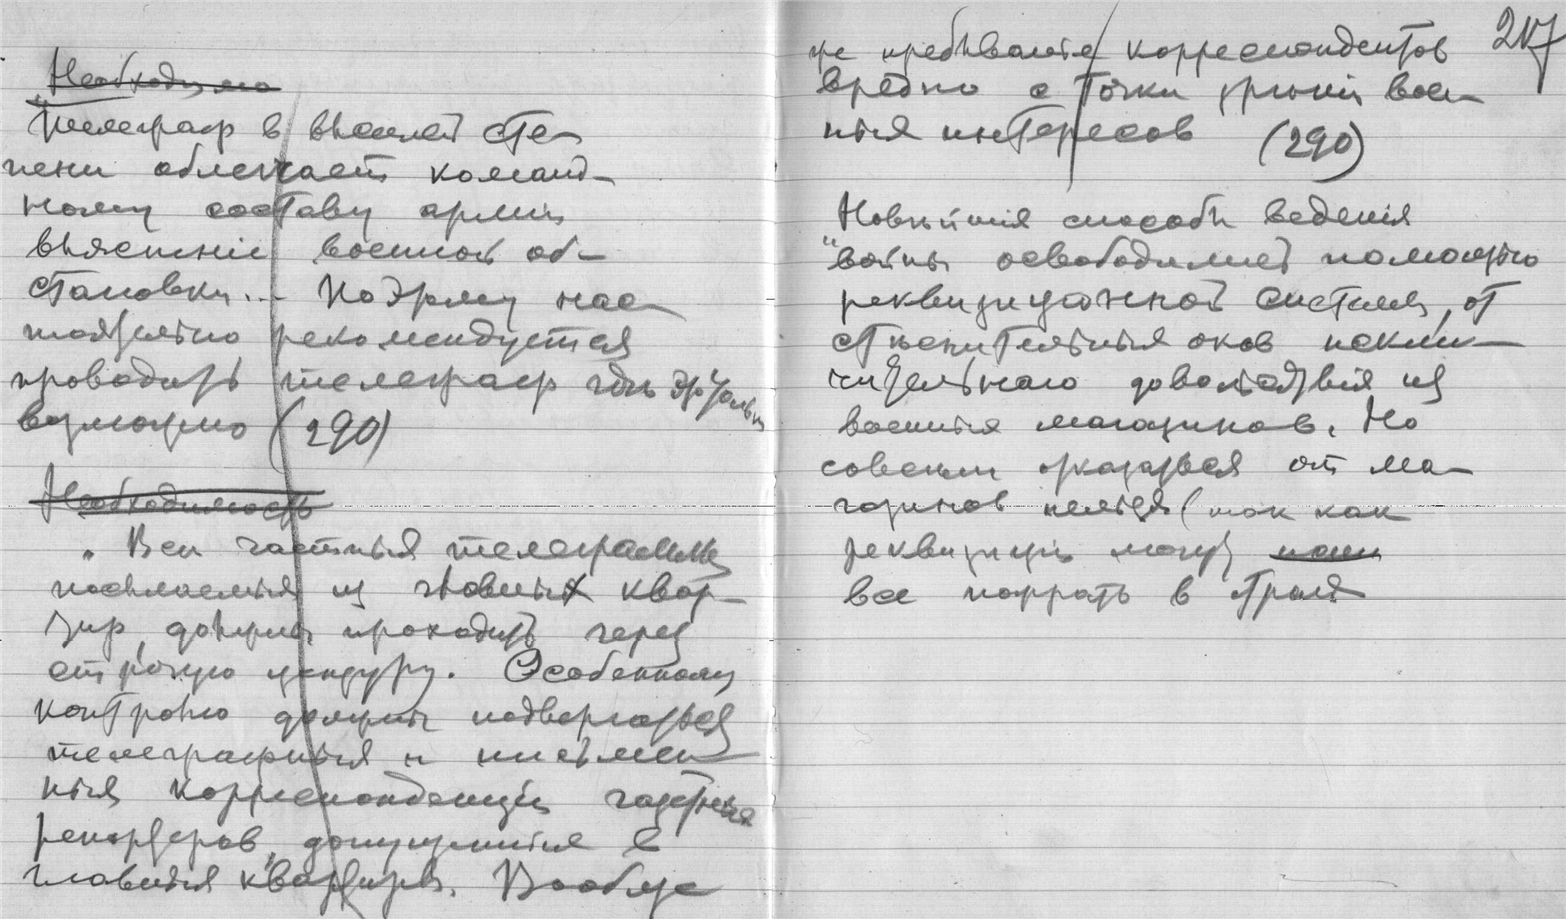 Необходимо
"Телеграф в высшей сте-
пени облегчает команд-
ному составу армии
выяснение военной об-
становки... Поэтому нас-
тоятельно рекомендуется
проводить телеграф где только
возможно (290)
Необходимость
"Все частныя телеграммы
посылаемыя из главных квар-
тир, должны проходить через
строгую цензуру. Особенному
контролю должны подвергаться
телеграфныя и письмен
ныя корреспонденции газетных
репортеров, допущенных в
главныя квартиры. Вообще
же пребывание корреспондентов
вредно с точки зрения воен-
ных интересов (290)
217
Новейшия способы ведения
"войны освободились помощью
реквизиционной системы, от
стеснительных оков исклю-
чительнаго довольствия из
военных магазинов. Но
совсем отказаться от ма-
газинов нельзя (так как
реквизиции могут
все